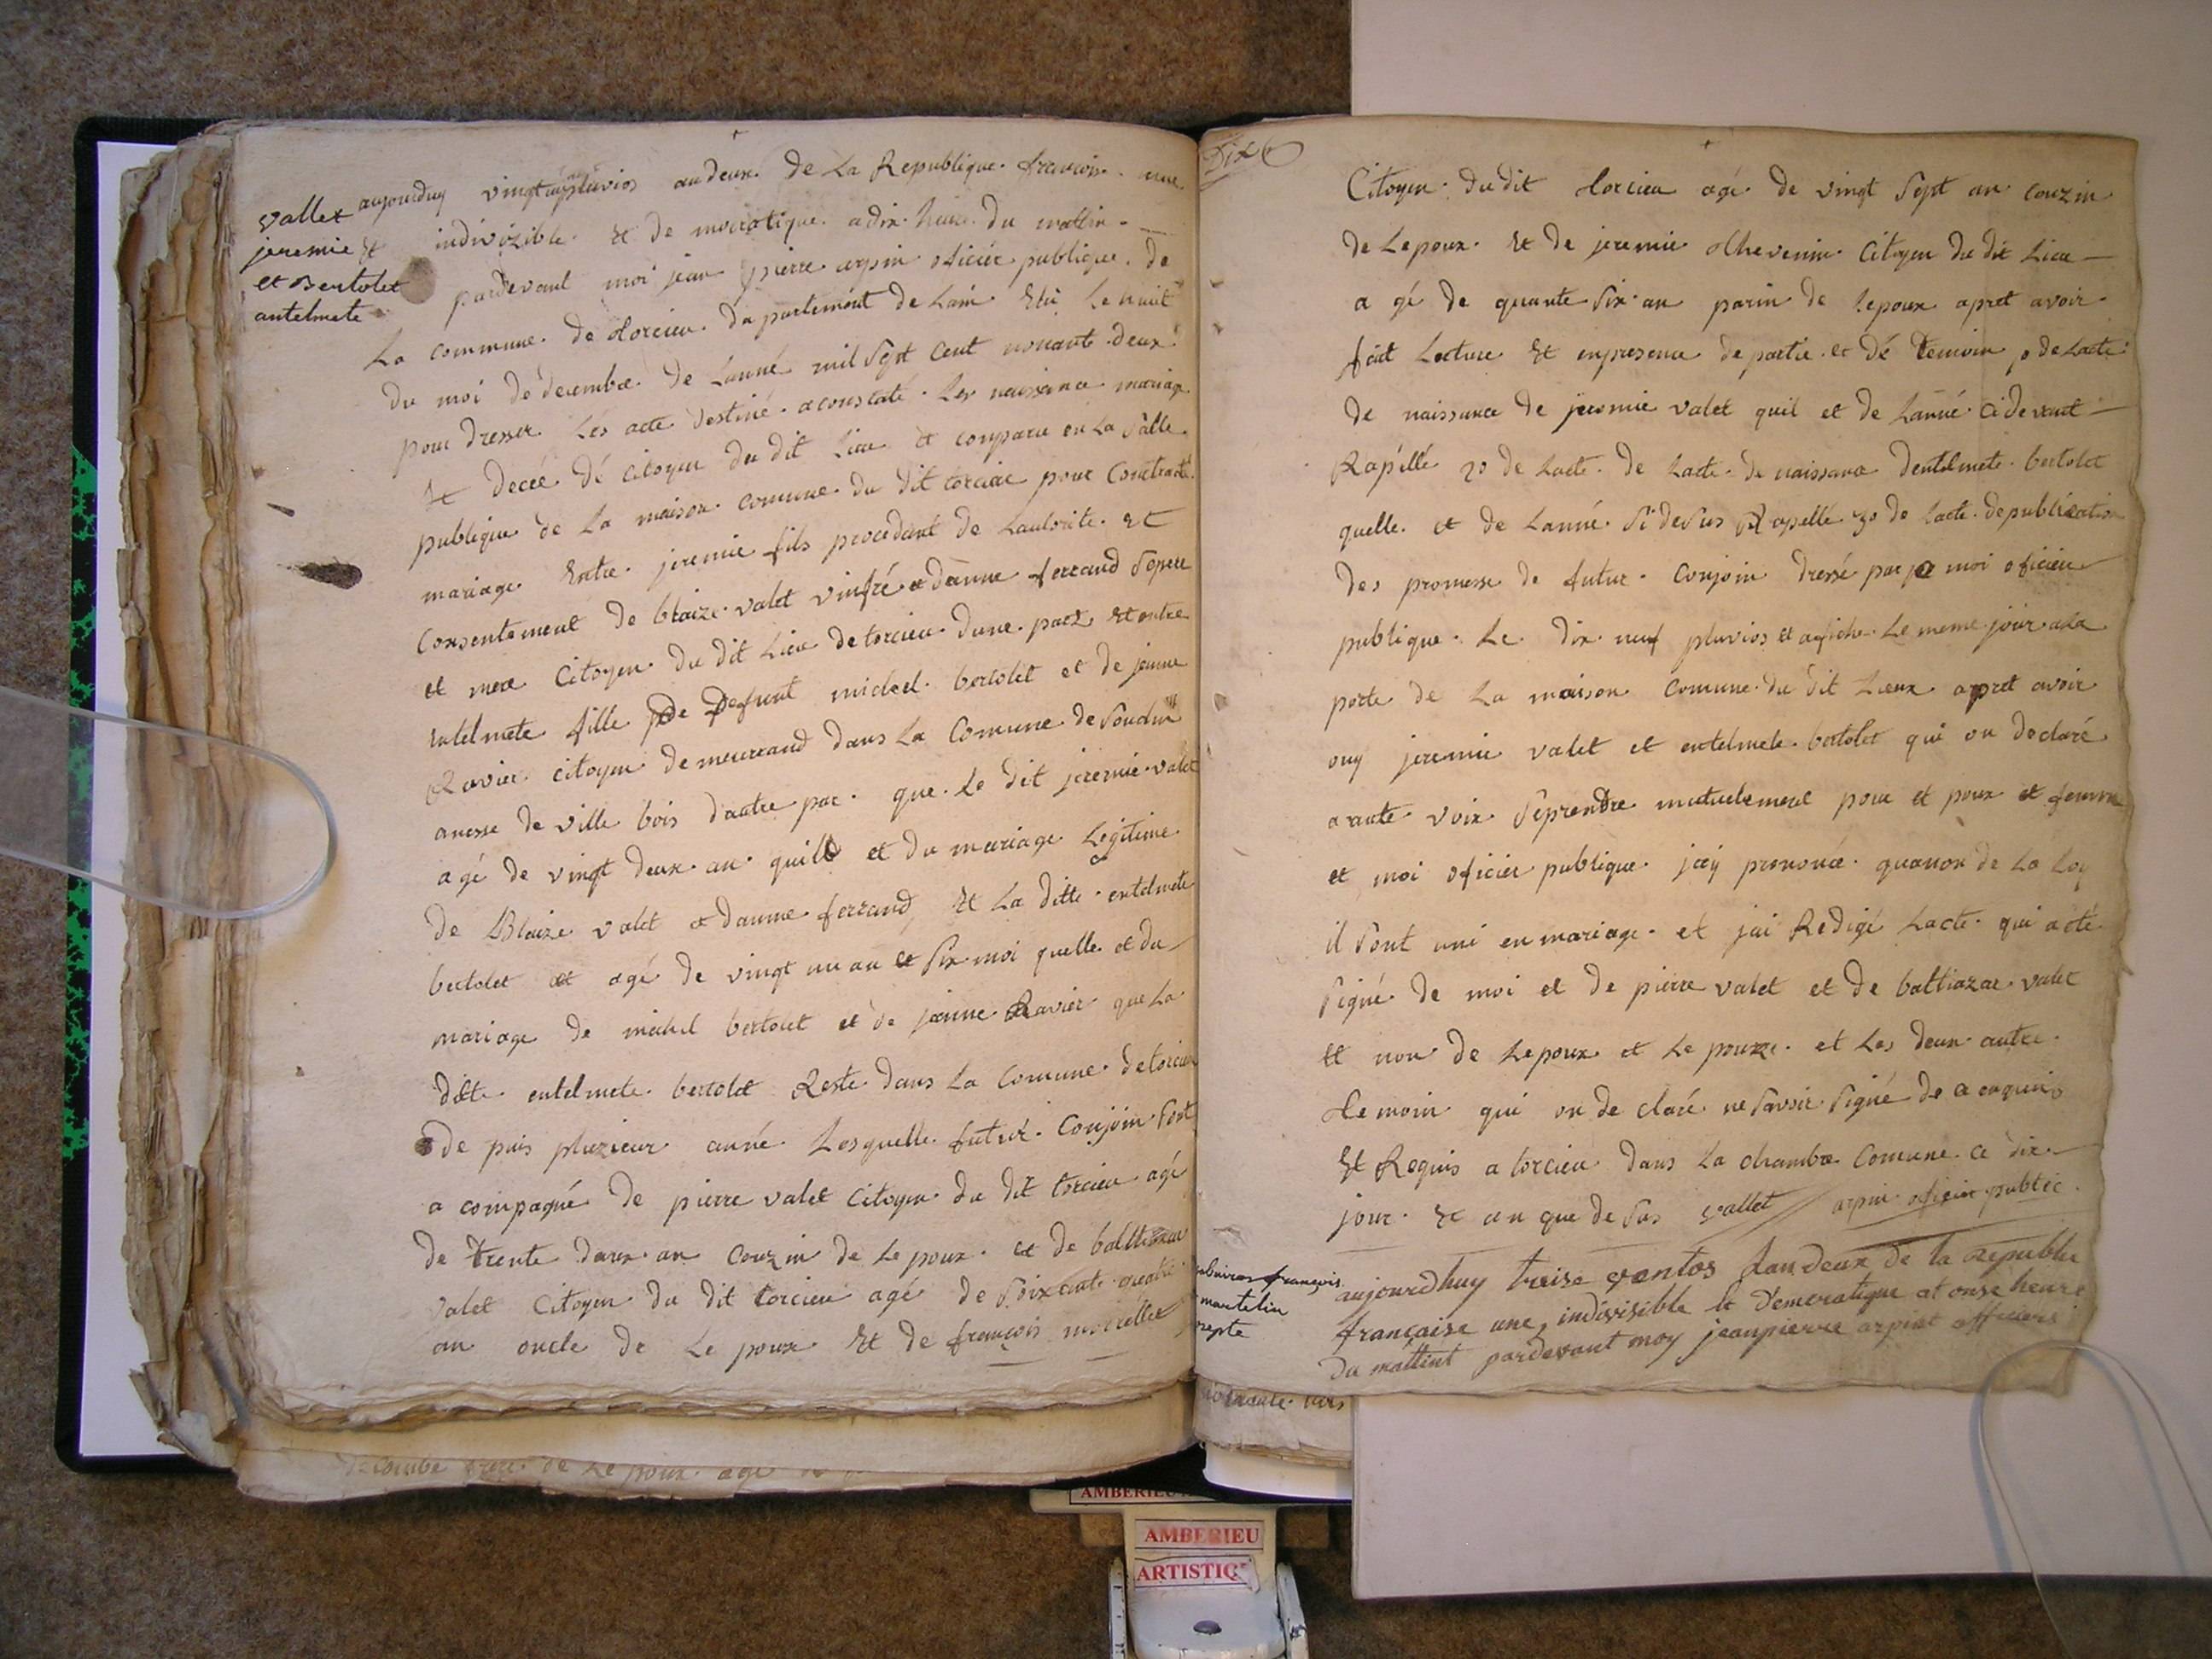 vallet
jeremie
et Bertolet
antelmete
aujourduy vingt un pluvios an deux de La Republique francoise une
Et indivizible Et de mocratique a dix heure du mattin
pardevant moi jean pierre arpin oficier publique de
La commune de torcieu dupartement de Lain Elu Le nuit
du moi de decembre de Lanné mil Sept Cent nonante deux
pour dresser Lés acte destiné a constaté Les naissance mariage
Et decée dé citoyen du dit Lieu et comparu en La Salle
publique de La maison comune du dit torcieu pour Contracté
mariage Entre jeremie fils procedant de Lautorite et
Consentement de blaize valet et danne ferrand Sepere
et mere Citoyen du dit Lieu de torcieu dune part Et entre
entelmete fille de Defunt michel bertolet et de jeanne
Ravier citoyen demeurrand dans La Comune de Soudın
anesse de ville bois dautre par que Le dit jeremie valet
agé de vingt deux an quill et du mariage Legitime
de Blaize valet et danne ferrand Et La ditte entelmete
bertolet et agé de vingt un an et Six moi quelle et du
mariage de michel bertolet et de jeanne Ravier que La
ditte entelmete bertolet Reste dans La Comune de torcieu
de puis pluzieur anné Lesquelle futur Conjoin Sont
a compagné de pierre valet Citoyen du dit torcieu agé
de trente deux an Couzin de Le poux et de baltiazar
valet Citoyen du dit torcieu agé de Soixente quatre
an oncle de Le poux Et de francois morellet
Dix 6
Citoyen du dit torcieu agé de vingt Sept an couzin
de Lepoux Et de jeremie thevenin Citoyen du dit Lieu
a gé de quante Six an parin de Lepoux apret avoir
fait Lecture Et enpresence de partie et dé temoin 1o de Lacte
de naissance de jeremie valet quil et de Lanné cidevant
Rapéllé 2o de Lacte de Lacte de naissance dentelmete bertolet
quelle et de Lanné Si deSus Rapellé 3o de Lacte de publication
des promesse de futur Conjoin dressé par moi oficier
publique Le dix neuf pluvios et afiche Le meme jour a La
porte de La maison Comune du dit Lieux apret avoir
ouy jeremie valet et entelmete bertolet qui on declaré
a aute voix Seprendre mutuelement pour et poux et femme
et moi oficier publique jaÿ prononcé quanon de La Loy
il Sont uni en mariage et jai Redigé Lacte qui a été
Signé de moi et de pierre valet et de baltiazar valet
Et non de Lepoux et Le pouze et Les deux autre
temoin qui on de claré ne Savoir Signé de ce enquis
Et Requis a torcieu dans La chambre Comune ce dix
jour Et an que de Sus vallet arpin oficier public
françois
martelin
aujourdhuy treise ventos Lan deux de la republic
française une, indivisible et Democratique at onse heure
du mattint pardevant moy jeanpierre arpint officiers
de Le poux age
AMBERIEU
AMBERIEU
ARTISTIQ